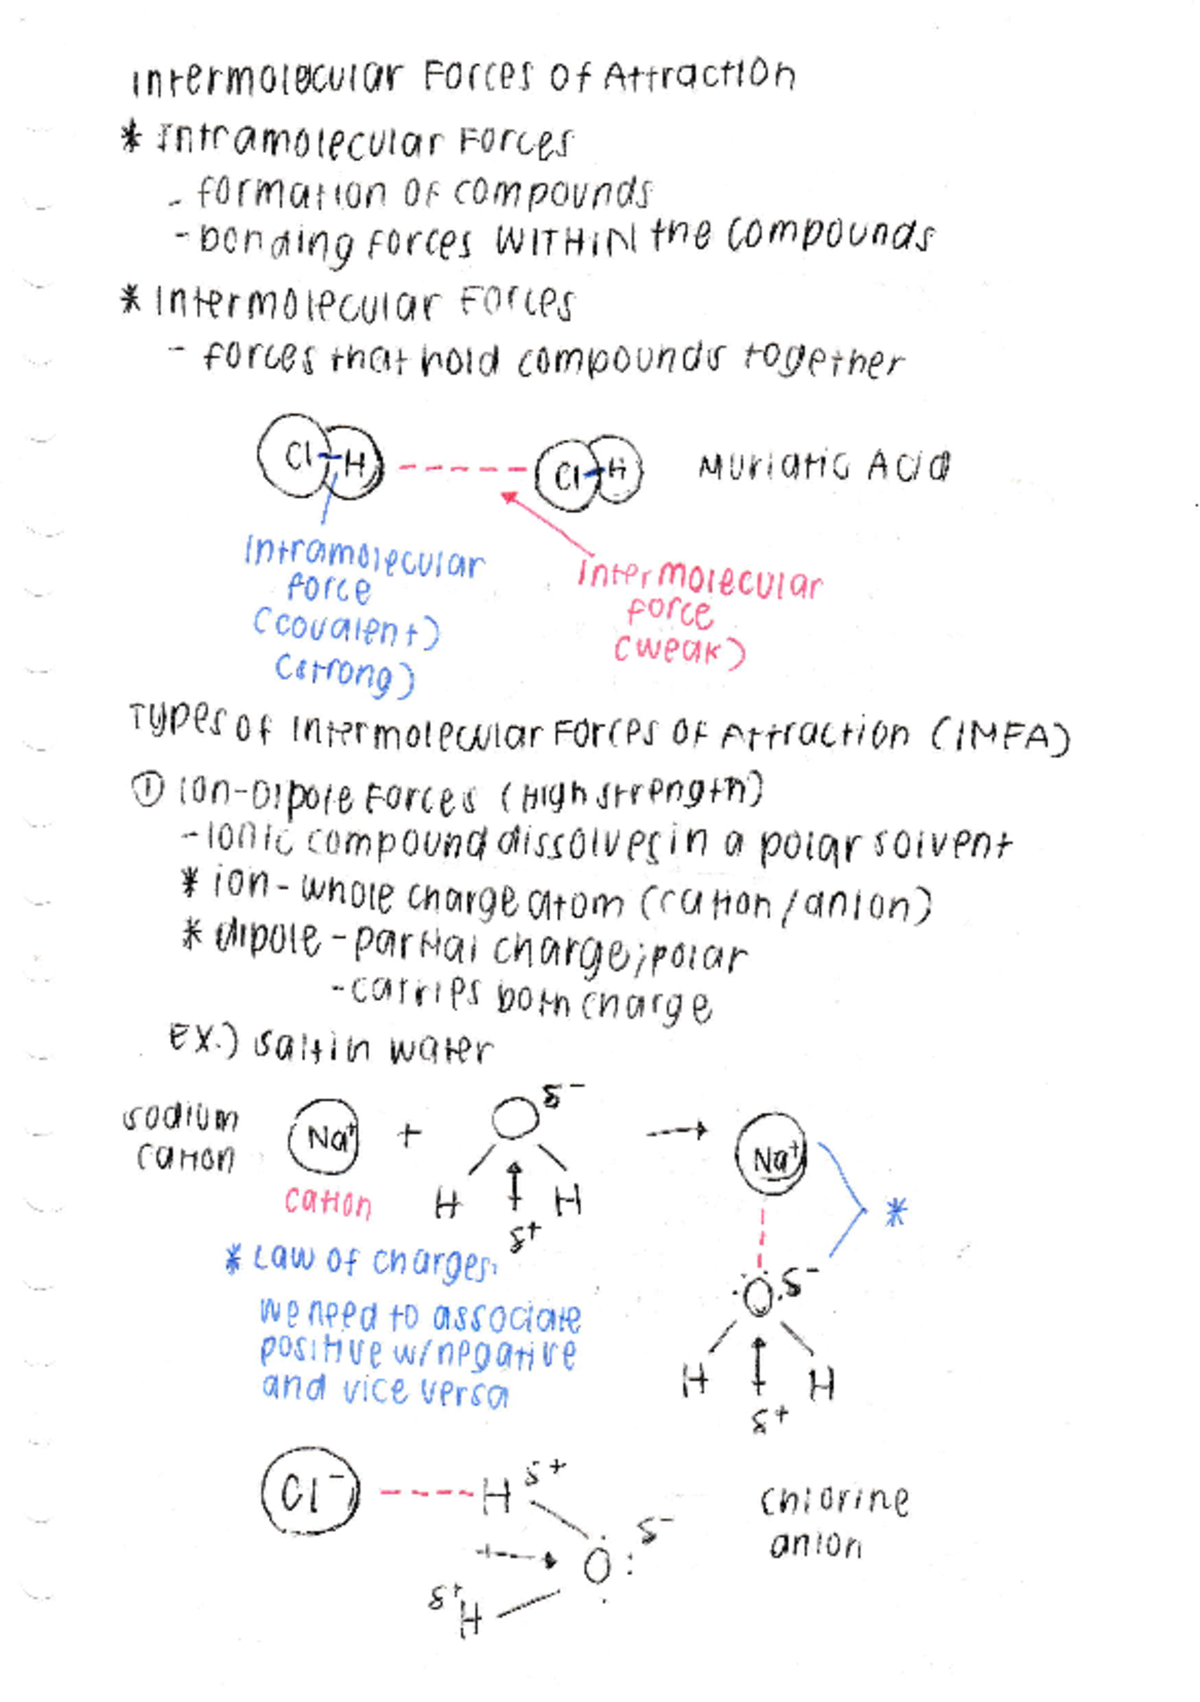 Intermolecular Forces of Attraction
* Intramolecular Forces
- formation of compounds
- bonding forces WITHIN the compounds
* Intermolecular Forces
- forces that hold compounds together
Cl-H Cl-H Muriatic Acid
Intramolecular
force
(covalent)
(strong)
Intermolecular
force
(weak)
Types of Intermolecular Forces of Attraction (IMFA)
① Ion-Dipole Forces (High strength)
- Ionic compound dissolves in a polar solvent
* ion - whole charge atom (cation/anion)
* dipole - partial charge; polar
- carries both charge
EX.) salt in water
sodium
cation
Na⁺ + O δ⁻ → Na⁺
cation
H H
δ⁺
*
* Law of charges:
we need to associate
positive w/negative
and vice versa
O δ⁻
H H
δ⁺
Cl⁻ H δ⁺
chlorine
anion
O δ⁻
δ⁺ H